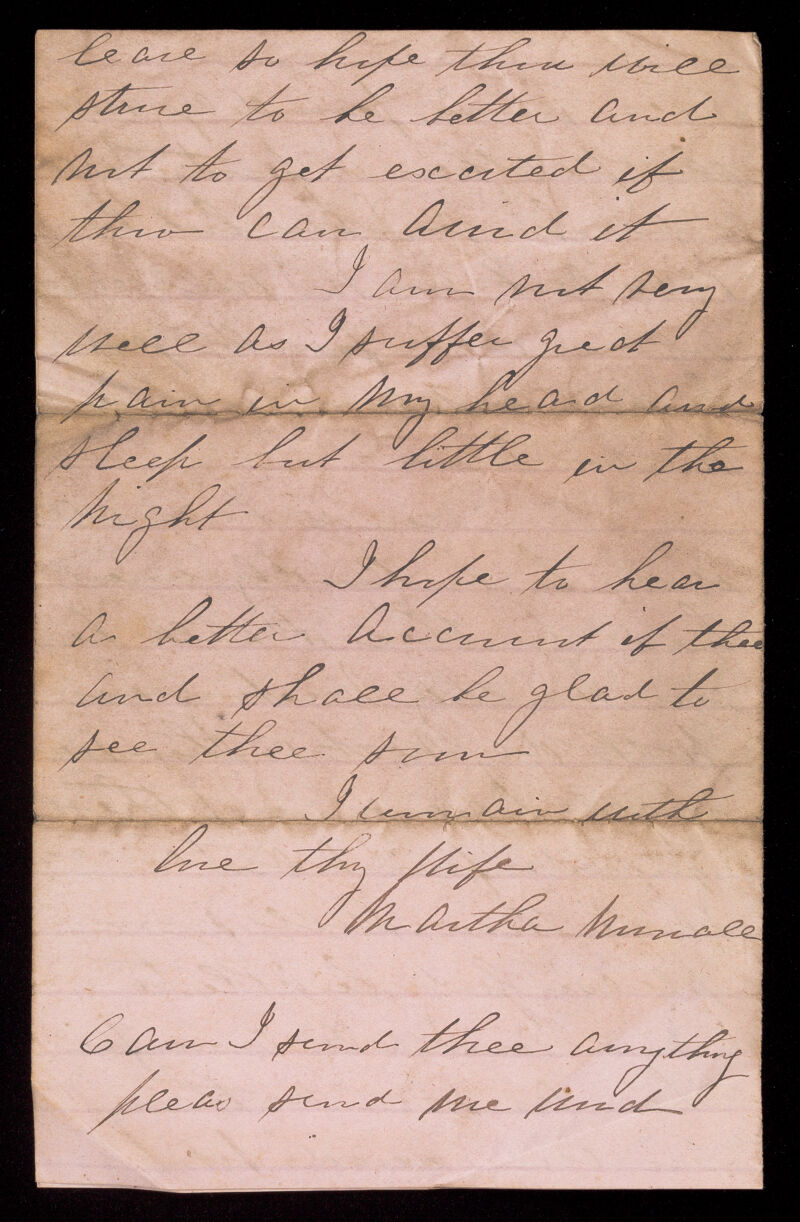 leave so hope thou will
strive to be better and
not to get excited if
thou can avoid it
I am not very
well as I suffer great
pain in my head and
sleep but little in the
Night
I hope to hear
a better account of thee
and shall be glad to
see thee soon
I remain with
love thy Wife
Martha
Can I send thee anything
pleas send me